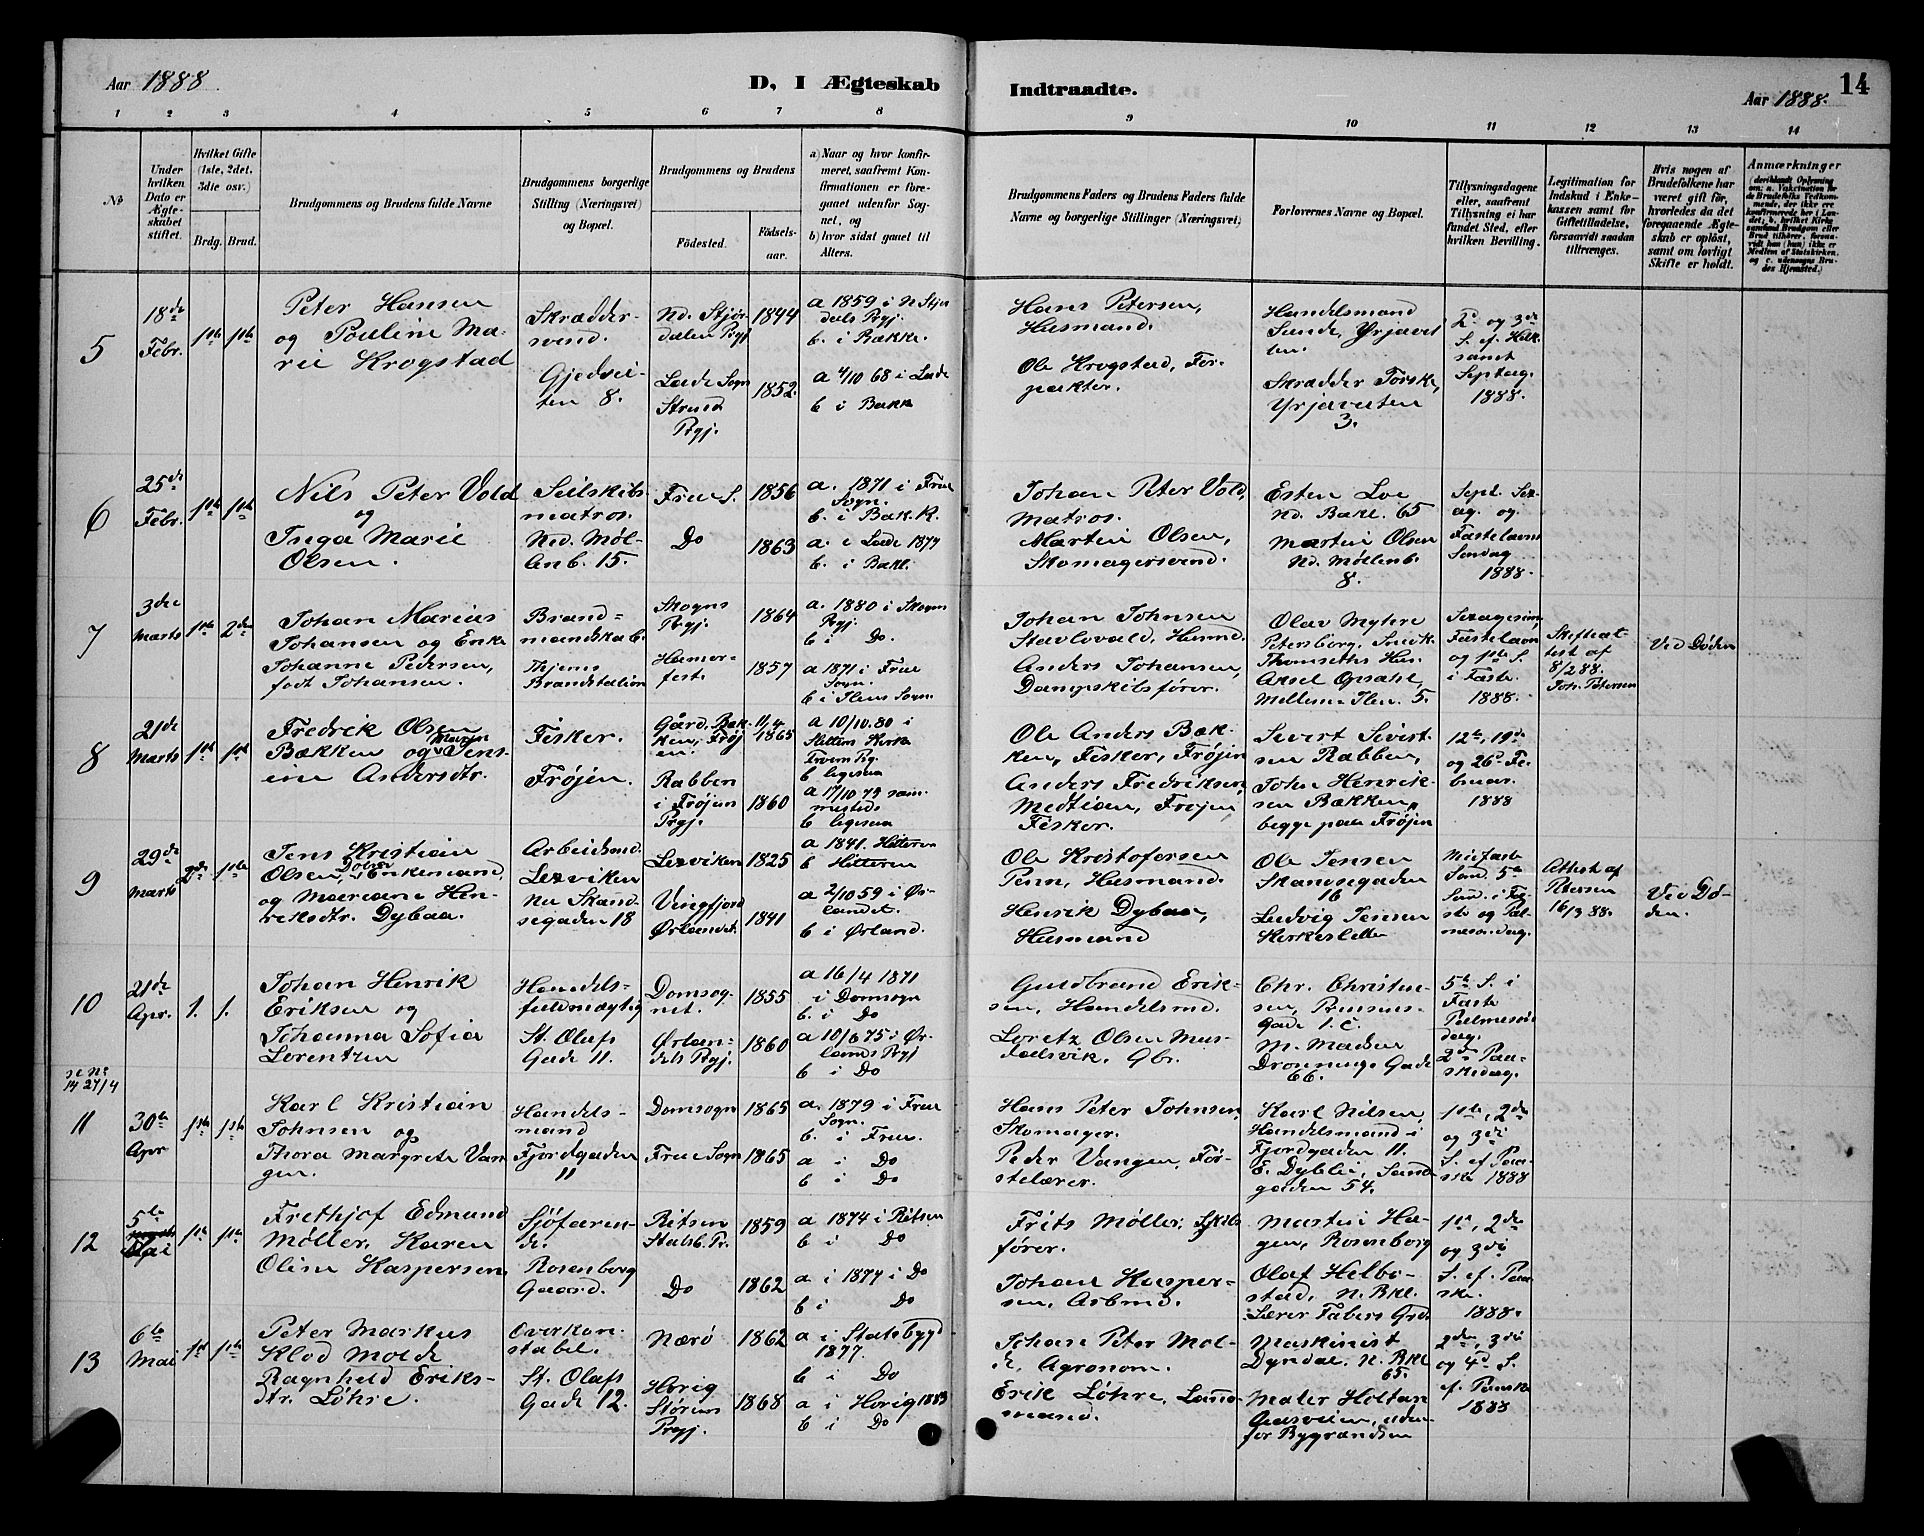 Aar 1888.
D, I Ægteskab
Indtraadte.
14
Aar 1888.
1 2 3 4 5 6 7 8 9 10 11 12 13 14
No
Under hvilken Dato er Ægteskabet stiftet.
Hvilket Gifte (1ste, 2det, 3die osv.)
Brdg. Brud.
Brudgommens og Brudens fulde Navne
Brudgommens borgerlige Stilling (Næringsvei) og Bopæl.
Brudgommens og Brudens
Fødested.
Fødselsaar.
a) Naar og hvor konfirmeret, saafremt Konfirmationen er foregaaet udenfor Sognet, og
b) hvor sidst gaaet til Alters.
Brudgommens Faders og Brudens Faders fulde Navne og borgerlige Stillinger (Næringsvei)
Forlovernes Navne og Bopæl.
Tillysningsdagene eller, saafremt Tillysning ei har fundet Sted, efter hvilken Bevilling.
Legitimation for Indskud i Enkekassen samt for Giftetilladelse, forsaavidt saadan tiltrænges.
Hvis nogen af Brudefolkene har været gift før, hvorledes da det foregaaende Ægteskab er opløst, samt om lovligt Skifte er holdt.
Anmærkninger
5
18de Febr.
1ste 1ste
Peter Hansen
og Pouline Ma-
rie Krogstad
Skrædder-
svend.
Gjedvei-
ten 8.
Nd. Stjør-
dalen Prgj
1844
Lade Sogn
Strind
Prgj.
1852.
a 1859 i N Stjør
dals Prgj.
b. i Bakke.
a 4/10 68 i Lade
b i Bakk
Hans Petersen,
Husmand.
Ole Krogstad, For-
pakter.
Handelsmand
Sunde, Yrjaveit
ten.
Skrædder Forske,
Yrjaveiten
3.
2d og 3de
S. ef. Hel3k.
samt
Septuag.
1888.
6
25de Febr.
1ste 1ste
Nils Peter Vold
og
Inga Marie
Olsen.
Seilskibs-
matros.
Ned. Møl-
lenb. 15.
Frue S.
1856
Do
1863
a. 1871 i Frue
Sogn.
b. i Bak.K.
a. i Lade 1877
b. i Bakl.
Johan Peter Vold,
Matros.
Martin Olsen,
Skomagersvend.
Esten Loe
Nd. Bakl. 65
Martin Olsen
Nd. Møllenb.
8.
Sept. Sex-
ag. og.
Fastelavns
Søndag
1888.
7
3die Marts
1ste 2den
Johan Marius
Johansen og Enke
Johanne Pedersen,
født Johansen.
Brand-
mandskab.
Brandstation
Skogns
Prgj.
1864
Hamer-
fest.
1857
a. 1880 i Skogns
Prgj.
b i Do.
a 1871 i Frue
Sogn.
b i Ilens Sogn.
Johan Johnsen
Husmd.
Anders Johansen,
Dampskibsfører.
Olav Myhre
Petersborg, Snedk.
Thomseths Hus
Axel Opsahl,
Mellem-Ilen 5.
Sexagesim,
Fastelavn
og 1ste S.
i Faste
1888.
Skifteat-
test af
8/2 88.
Joh. Petersen
Ved Døden
8
21de Marts
1ste 1ste
Fredrik Olsen
Bækken og Maren Jens-
ine Andersdtr.
Fisker.
Frøjen.
Gård. Bæk-
ken, Frøj
en
11/4
1865
Rabben
i Frøjen
Prgj.
1860
a 10/10.80 i
b ligesaa
a 17/10 79 sam-
mesteds
b ligesaa
Ole Anders Bæk-
ken, Fisker, Frøjen
Anders Fredriksen
Medtien, Frøjen,
Fisker.
Sivert Sivert-
sen Rabben,
John Henrik-
sen Bækken,
begge paa Frøjen
12te, 19de
og 26de Fe-
bruar.
1888
9
29de Marts
2de 1ste
Jens Kristian
Olsen, Enkemand,
og Mariane Hen-
riksdtr. Dybaa.
Arbeidsmd.
Lexviken
nu Skand-
segaden 18
Lexviken
1825
Vingfjord
Ørlandet.
1841
a 1841. Hitteren
b Hitteren
a 2/10 59 i Ør-
landet.
b i Ørland.
Ole Kristofersen
Penn, Husmand.
Henrik Dybaa,
Husmand
Ole Jensen
Skandsegaden
16
Ludvig Jensen
Kirkesletten
Midfaste
Sønd. 5te
Sønd. i Fa-
ste og Pal-
mesøndag.
Attest af
Petersen
16/3 88.
Ved Dø-
den.
10
21de Apr.
1. 1.
Johan Henrik
Eriksen og
Johanna Sofia
Lorentzen
Handels-
fuldmægtig
St. Olafs
Gade 11.
Domsog-
net.
1855
Ørlan-
dets Prgj.
1860
a 16/4 1871
i Domsogn
b. i Do
a 10/6 75 i Ør-
lands Prgj
b i Do
Guldbrand Erik-
sen, Handelsmd.
Loretz Olsen Mus-
dalsvik, Gbr.
Chr. Christen-
sen, Prinsens-
Gade 1. C.
M. Madsen
Dronnings Gade
66.
5te S. i
Faste
Palmesøn
dag.
2den Paa-
skedag.
se No
14 27/4
11
30te Apr
1ste 1ste
Karl Kristian
Johnsen og
Thora Margrete Van-
gen.
Handels-
mand
Fjordgaden
11
Domsogn
1865
Frue Sogn
1865
a. 1879 i Frue
Sogn.
b. i Frue.
a i Do
b i Do
Hans Peter Johnsen,
Skomager.
Peder Vangen, For-
stelærer.
Karl Nilsen,
Handelsmand i
Fjordgaden 11.
E. Dyblie, Sand-
gaden 54.
1ste, 2den
og 3die
S. ef. Paa-
ske 1888
12
5te
Mai
1ste 1ste
Frethjof Edmund
Møller, Karen
Oline Kaspersen
Sjøfaren-
de.
Rosenborg
Gaard.
Ritsen
Stadsb. Pr.
1859
Do
1862
a 1874 i Ritsen
b i Do
a i 1877 i Do
b i Do
Frits Møller, Skibs
fører.
Johan Kasper-
sen, Arbmd.
Martin Ha-
gen, Rosenborg
Olaf Helbo-
stad, N. Bkl.
Lærer Fabers Grd.
1ste, 2den
og 3die
S. ef. Paa-
ske.
1888.
13
6te
Mai
1ste 1ste
Peter Markus
Klod Molde
Ragnhild Eriks-
dtr. Løhre.
Overkon-
stabel.
St. Olafs
Gade 12.
Nærø
1862
Horig
Størens
Prgj.
1868
a i Stadsbygd
1877
b i Do
a i Horig 1883
b i Do
Johan Peter Mol-
de, Agronom.
Erik Løhre, Land-
mand.
Maskinist
Dyndal, N. Bkl
65.
Maler Holtan
Gaasveien, uden-
for Bygrændsen
2den, 3die
og 4de S.
ef. Paaske
1888